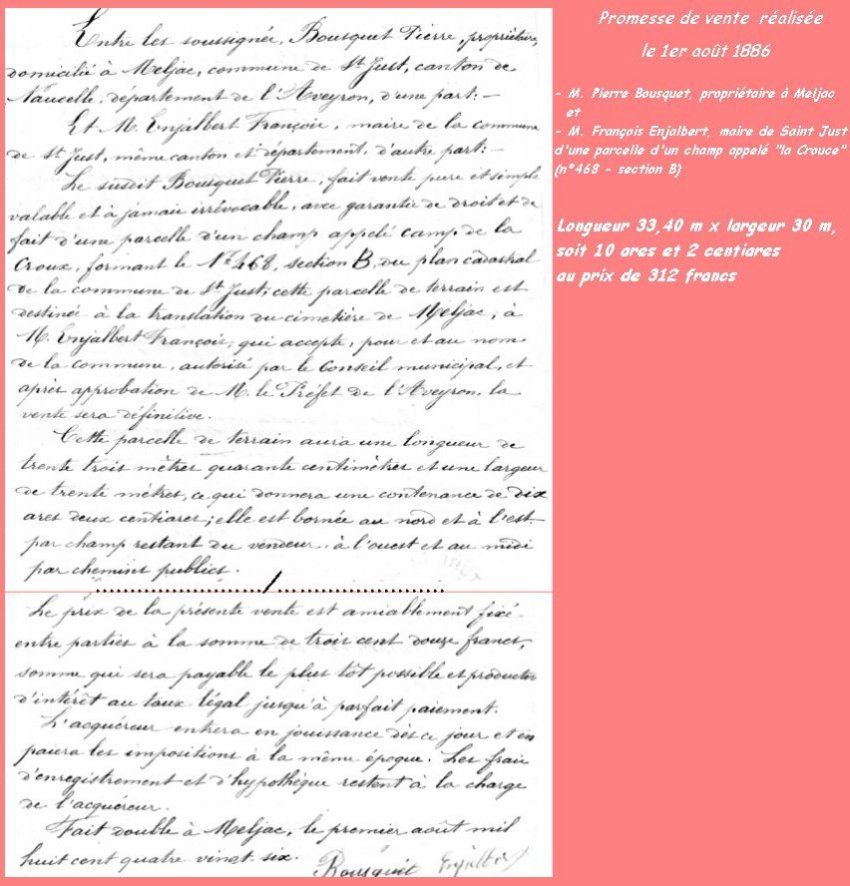 Entre les soussignés, Bousquet Pierre, propriétaire,
domicilié à Meljac, commune de St Just, canton de
Naucelle, département de l'Aveyron, d'une part: —
Et M. Enjalbert François, maire de la commune
de St Just, même canton et département, d'autre part: —
Le susdit Bousquet Pierre, fait vente pure et simple
valable et à jamais irrévocable, avec garantie de droit et de
fait d'une parcelle d'un champ appelé camp de la
Croux, formant le No 468, section B, du plan cadastral
de la commune de St Just; cette parcelle de terrain est
destinée à la translation du cimetière de Meljac, à
M. Enjalbert François, qui accepte, pour et au nom
de la commune, autorisé par le Conseil municipal, et
après approbation de M. le Préfet de l'Aveyron, la
vente sera définitive.
Cette parcelle de terrain aura une longueur de
trente trois mètres quarante centimètres et une largeur
de trente mètres, ce qui donnera une contenance de dix
ares deux centiares; elle est bornée au nord et à l'est
par champ restant du vendeur, à l'ouest et au midi
par chemins publics.
Le prix de la présente vente est amiablement fixé
entre parties à la somme de trois cent douze francs,
somme qui sera payable le plus tôt possible et productive
d'intérêt au taux légal jusqu'à parfait paiement.
L'acquéreur entrera en jouissance dès ce jour et en
paiera les impositions à la même époque. Les frais
d'enregistrement et d'hypothèque restent à la charge
de l'acquéreur.
Fait double à Meljac, le premier août mil
huit cent quatre vingt six.
Bousquet Enjalbert
Promesse de vente réalisée
le 1er août 1886
- M. Pierre Bousquet, propriétaire à Meljac
et
- M. François Enjalbert, maire de Saint Just
d'une parcelle d'un champ appelé "la Crouce"
(n°468 - section B)
Longueur 33,40 m x largeur 30 m,
soit 10 ares et 2 centiares
au prix de 312 francs